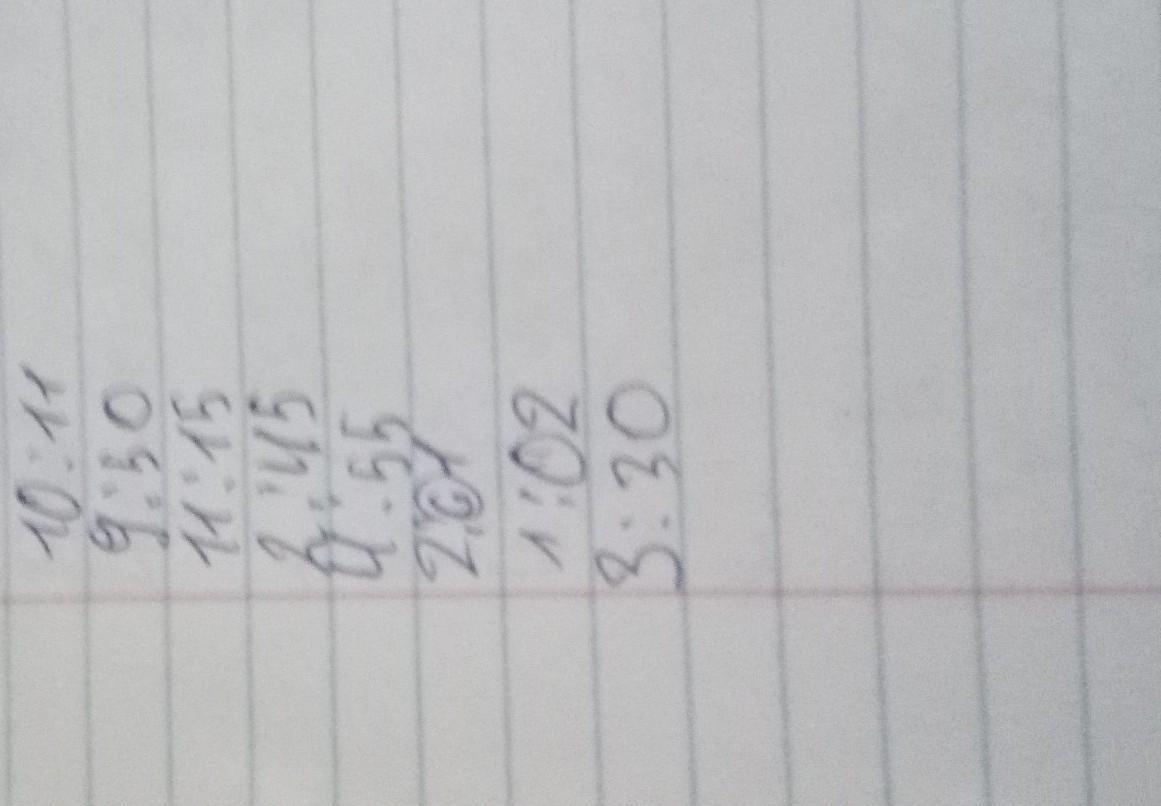 10:11
9:50
11:15
2:45
4:55
1:02
3:30